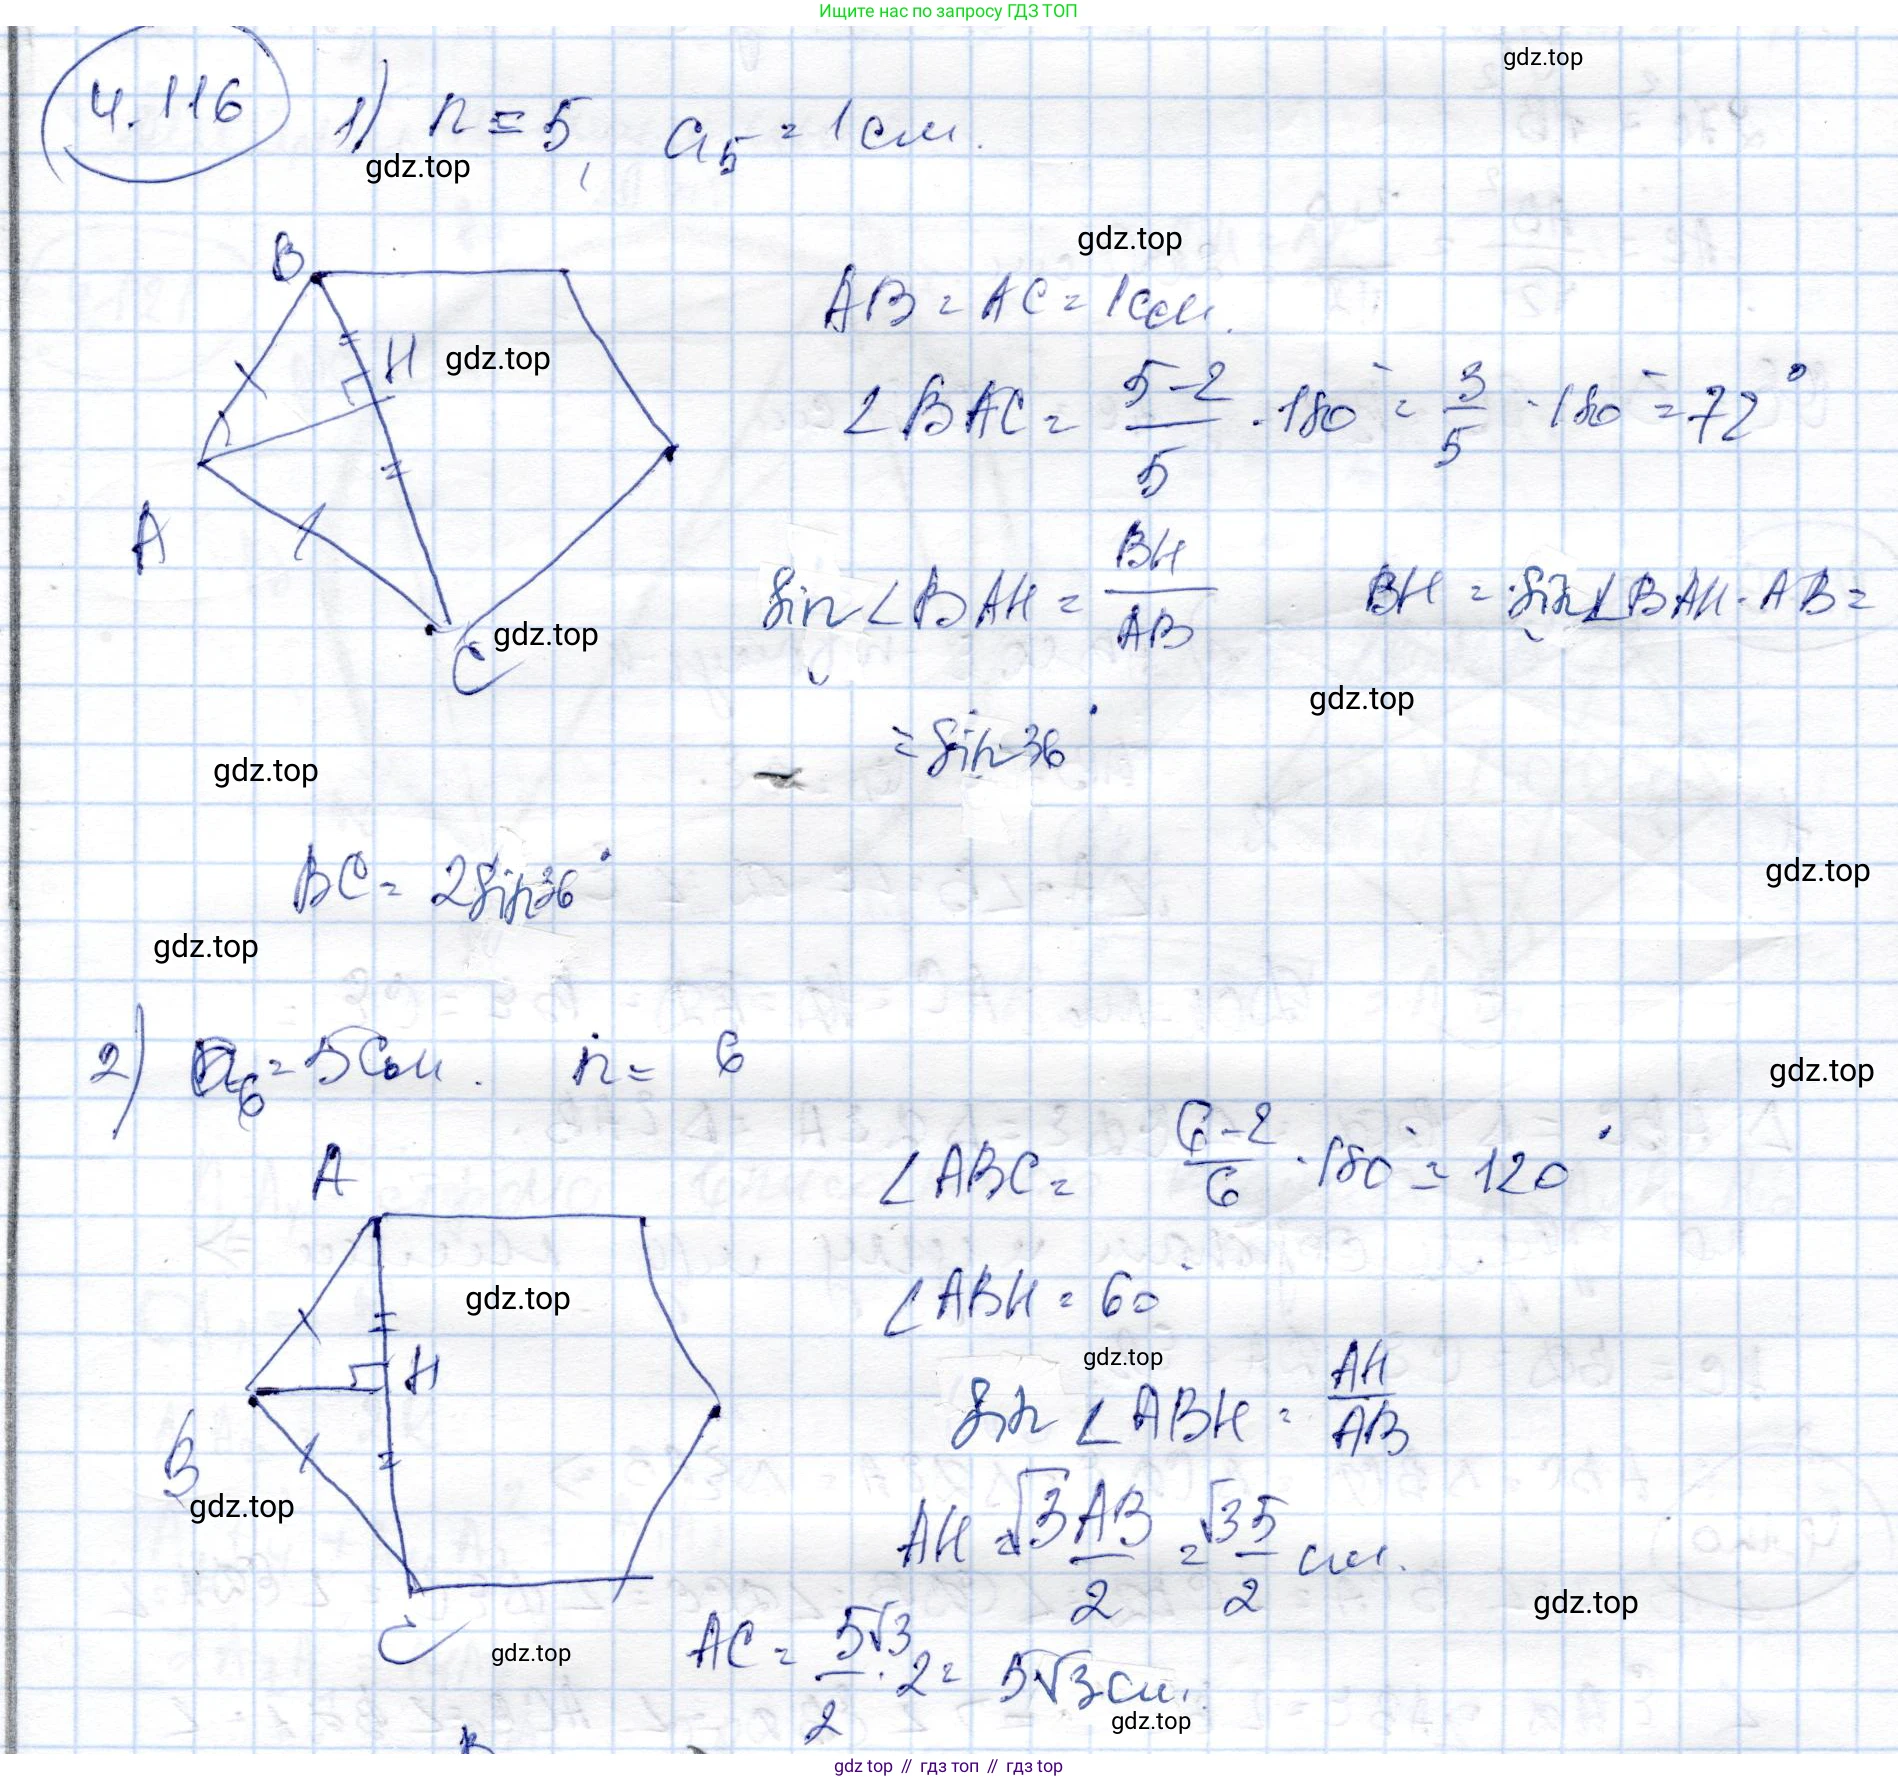 Ищите нас по запросу ГДЗ ТОП
gdz.top
4.116 1) n = 5, a₅ = 1 см.
gdz.top
B
gdz.top
AB = AC = 1 см.
H gdz.top
∠BAC = (5-2)/5 · 180° = 3/5 · 180° = 72°
A
sin∠BAH = BH/AB BH = sin∠BAH · AB =
C gdz.top
gdz.top
= sin 36°
gdz.top
BC = 2 sin 36°
gdz.top
gdz.top
2) a₆ = 5 см. n = 6
gdz.top
A
∠ABC = (6-2)/6 · 180° = 120°
gdz.top
∠ABH = 60°
gdz.top
H
sin ∠ABH = AH/AB
B
gdz.top
AH = √3 AB/2 = √3 5/2 см.
gdz.top
C gdz.top
AC = 5√3/2 · 2 = 5√3 см.
gdz.top
B
gdz top // гдз топ // gdz top